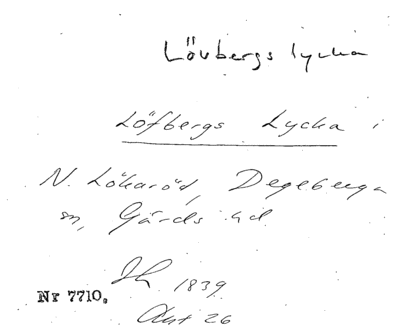 Lövbergs lycka
Löfbergs Lycka i
N. Lökaröd, Degeberga
sn, Gärds hd.
1839
Nr 7710.
Akt 26